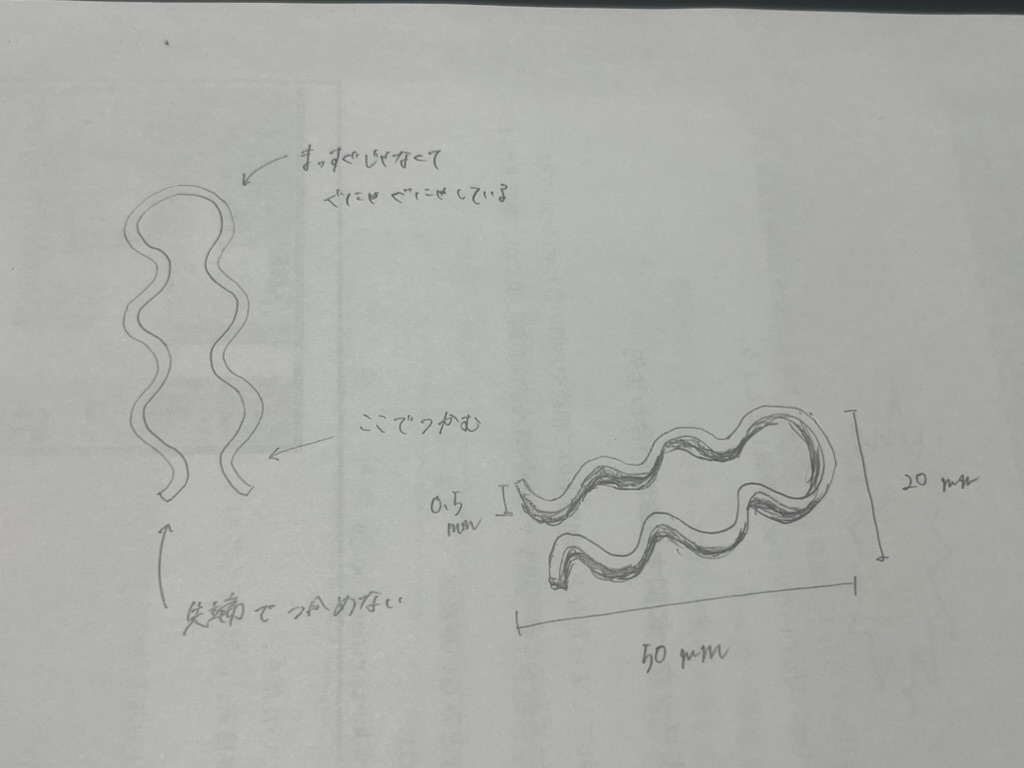 まっすぐじゃなくて
ぐにゃぐにゃしている
ここでつかむ
先端でつかめない
0.5
mm
20 mm
50 mm